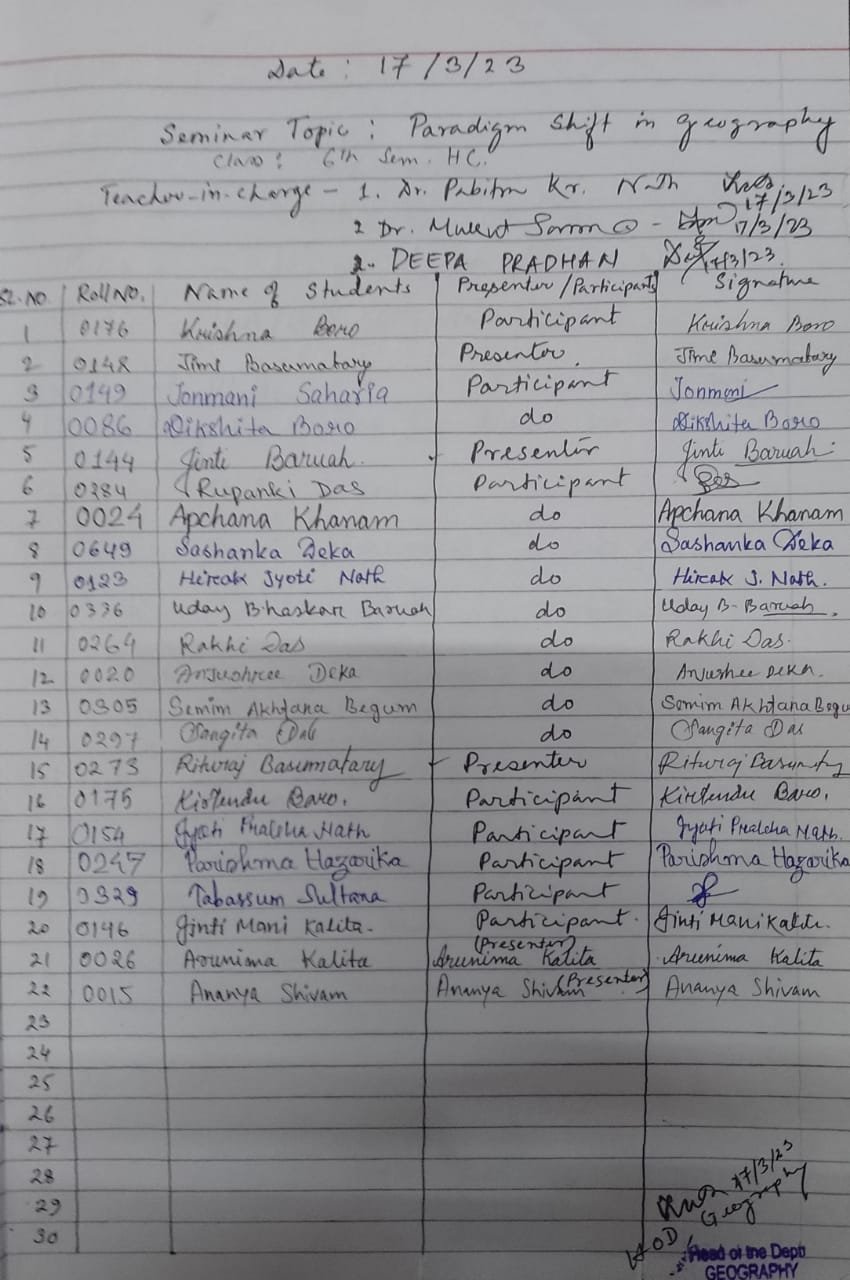 Date : 17/3/23
Seminar Topic : Paradigm Shift in geography
Class : 6th Sem. HC.
Teacher-in-charge - 1. Dr. Pabitra Kr. Nath 17/3/23
2 Dr. 17/3/23
2. DEEPA PRADHAN 17/3/23.
SL.NO Roll NO. Name of Students Presenter/Participants Signature
1 0176 Krishna Boro Participant Krishna Boro
2 0148 Jime Basumatary Presenter. Jime Basumatary
3 0149 Jonmani Saharia Participant Jonmoni
4 0086 Dikshita Boro do Dikshita Boro
5 0144 Jinti Baruah. Presenter Jinti Baruah.
6 0284 Rupanki Das Participant
7 0024 Apchana Khanam do Apchana Khanam
8 0649 Sashanka Deka do Sashanka Deka
9 0123 Hirak Jyoti Nath do Hirak J. Nath.
10 0336 Uday Bhaskar Baruah do Uday B. Baruah.
11 0264 Rakhi Das do Rakhi Das.
12 0020 Anjushree Deka do Anjushee DEKA.
13 0305 Semim Akhtana Begum do Semim Akhtana Begu
14 0297 Sangita Das do Sangita Das
15 0273 Rituraj Basumatary Presenter Rituraj Basumatary
16 0175 Kirtendu Baro. Participant Kirtendu Baro.
17 0154 Jyoti Nath Participant Jyoti Nath.
18 0247 Parishma Hazarika Participant Parishma Hazarika
19 0329 Tabassum Sultana Participant
20 0146 Jinti Mani Kalita. Participant. Jinti Mani Kalita.
21 0026 Arunima Kalita (Presenter) Arunima Kalita Arunima Kalita
22 0015 Ananya Shivam Ananya Shivam (Presenter) Ananya Shivam
23
24
25
26
27
28
29
30
17/3/23
HOD, Geography
Head of the Deptt
GEOGRAPHY